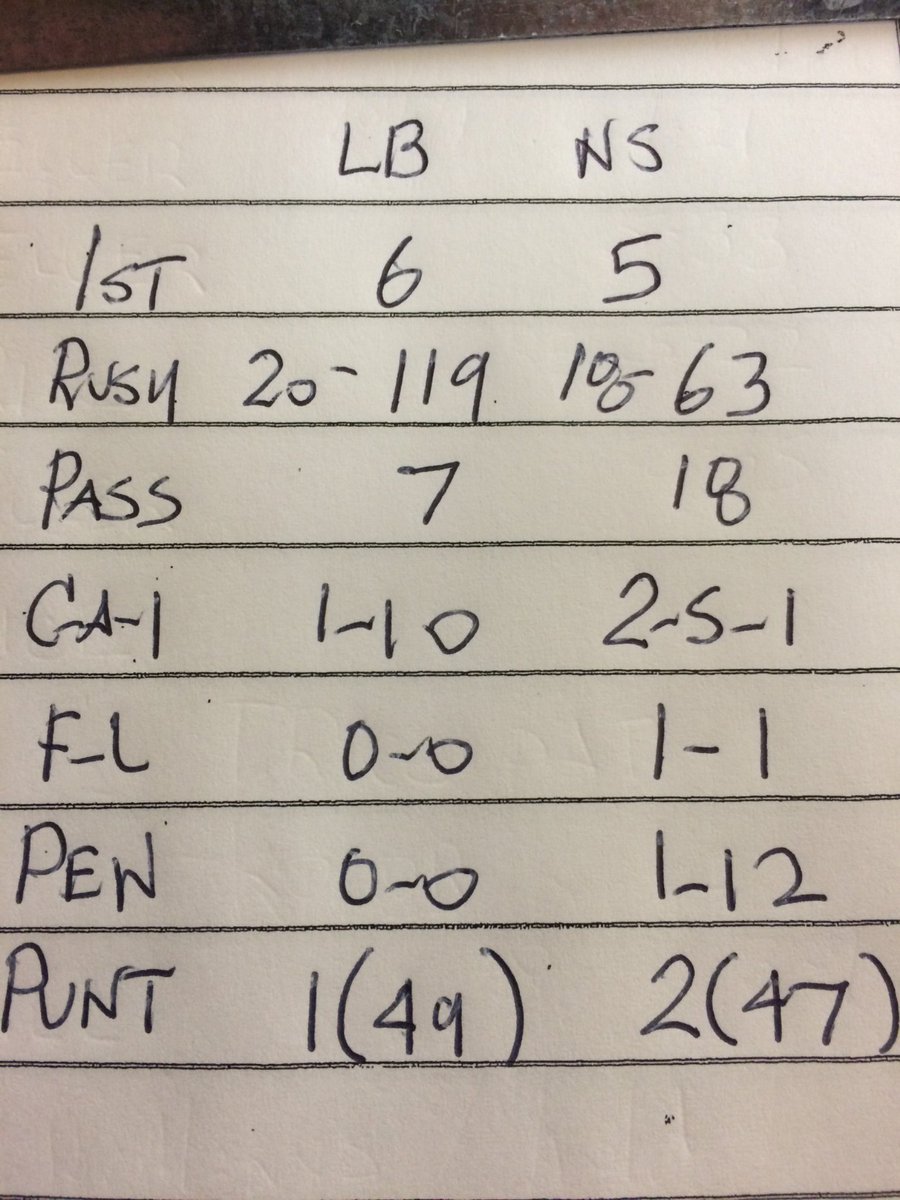 LB NS
1ST 6 5
RUSH 20-119 18-63
PASS 7 18
C-A-I 1-1 0 2-5-1
F-L 0-0 1-1
PEN 0-0 1-12
PUNT 1(49) 2(47)